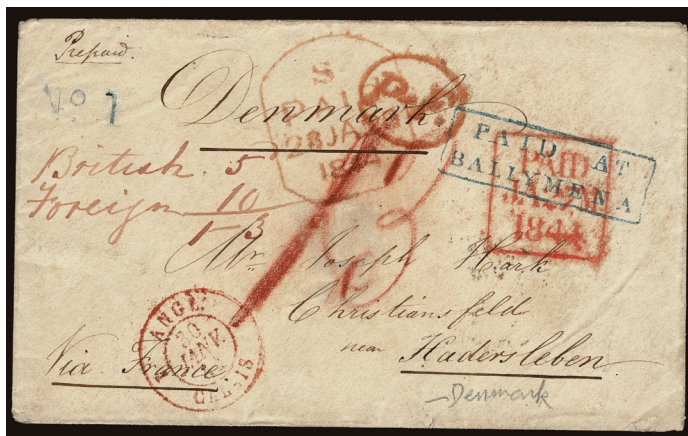 Prepaid.
Vo 7
Denmark
S
PAID
28 JA 28
1844
PAID AT
BALLYMENA
PAID
1844
British 5
Foreign 10
1 3
Mr. Joseph Hark
Christiansfeld
near Hadersleben
Via France
ANGL.
30
JANV.
CALAIS
Denmark